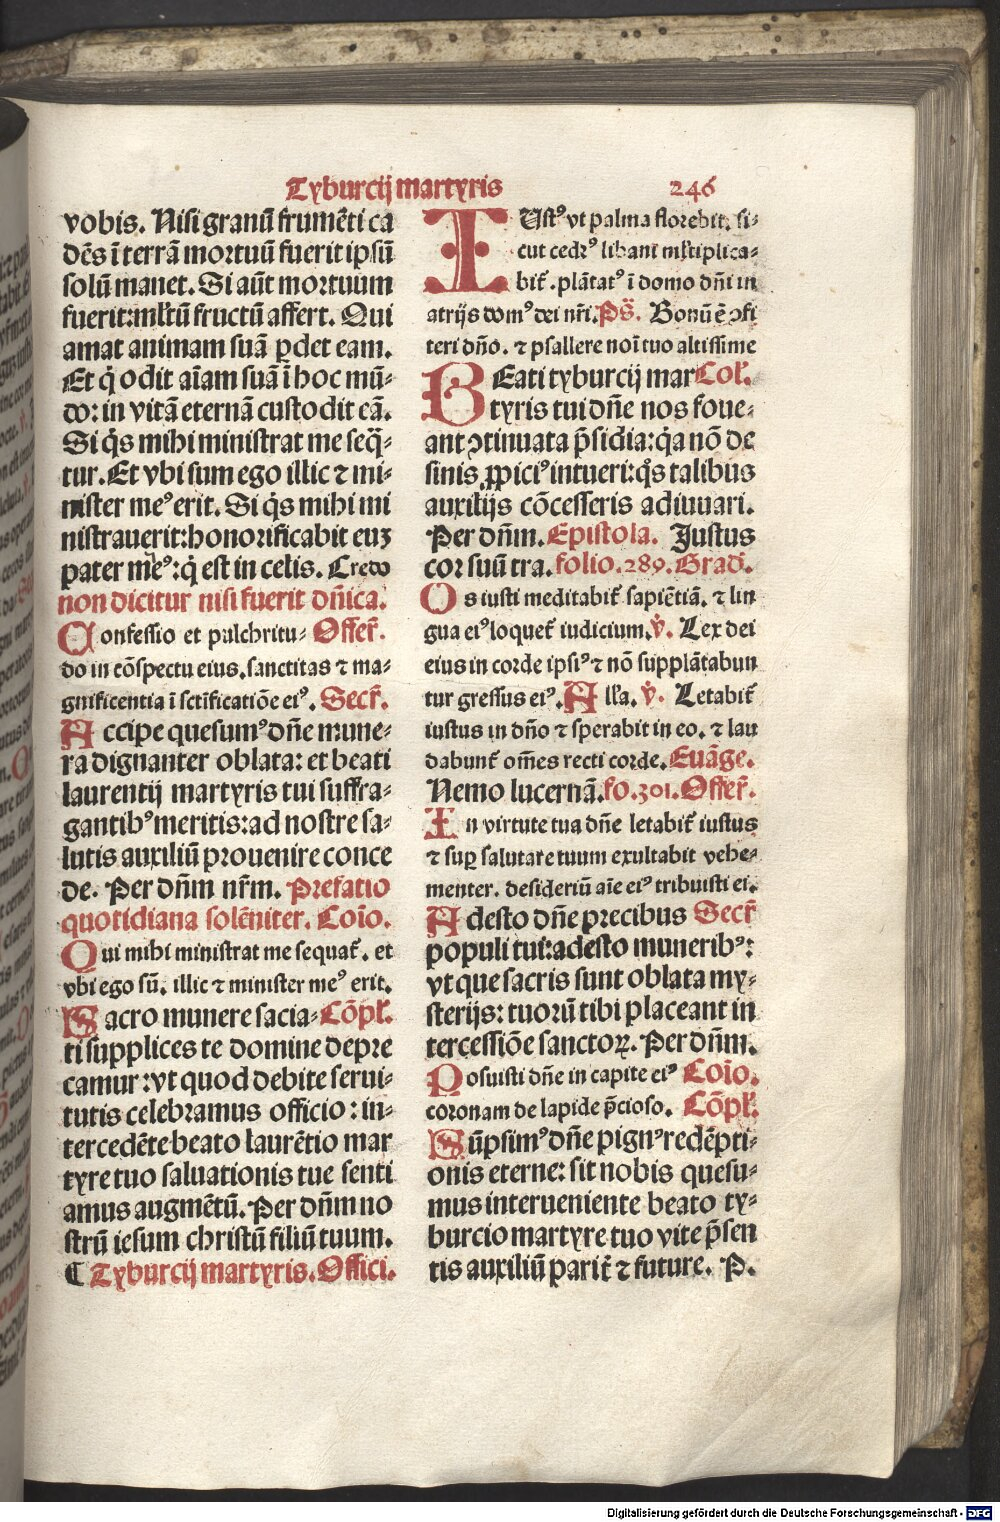 Tyburcij martyris 246
vobis. Nisi granū frumēti ca
dēs ī terrā mortuū fuerit ipsū
solū manet. Si aūt mortuum
fuerit: ml̄tū fructū affert. Qui
amat animam suā ꝑdet eam.
Et q̇ odit aīam suā ī hoc mū-
do: in vitā eternā custodit eā.
Si q̇s mihi ministrat me seq̄-
tur. Et vbi sum ego illic ⁊ mi-
nister meꝰ erit. Si q̇s mihi mi
nistrauerit: honorificabit euꝫ
pater meꝰ: q̇ est in celis. Credo
non dicitur nisi fuerit dñica.
Confessio et pulchritu- Offer̄.
do in cōspectu eius. sanctitas ⁊ ma-
gnificentia ī sctificatiōe eiꝰ. Secr̄.
Accipe quesumꝰ dñe mune-
ra dignanter oblata: et beati
laurentij martyris tui suffra-
gantibꝰ meritis: ad nostre sa-
lutis auxiliū prouenire conce
de. Per dñm nr̄m. Prefatio
quotidiana solēniter. Coīo.
Qui mihi ministrat me sequat̄. et
vbi ego sū. illic ⁊ minister meꝰ erit.
Sacro munere sacia- Cōpl̄.
ti supplices te domine depre
camur: vt quod debite serui-
tutis celebramus officio: in-
tercedēte beato laurētio mar
tyre tuo saluationis tue senti
amus augmētū. Per dñm no
strū iesum christū filiū tuum.
¶ Tyburcij martyris. Offici.
IUstꝰ vt palma florebit. si-
cut cedrꝰ libani ml̄tiplica-
bit̄. plātatꝰ ī domo dñi in
atrijs domꝰ dei nr̄i. Ps̄. Bonū ē ↄfi
teri dño. ⁊ psallere noī tuo altissime
BEati tyburcij mar Col̄.
tyris tui dñe nos foue-
ant ↄtinuata p̄sidia: q̇a nō de
sinis ꝓpiciꝰ intueri: q̇s talibus
auxilijs cōcesseris adiuuari.
Per dñm. Epistola. Justus
cor suū tra. folio. 289. Grad̄.
Os iusti meditabit̄ sapiētiā. ⁊ lin
gua eiꝰ loquet̄ iudicium. v̇. Lex dei
eius in corde ipsiꝰ ⁊ nō supplātabun
tur gressus eiꝰ. All̄a. v̇. Letabit̄
iustus in dño ⁊ sperabit in eo. ⁊ lau
dabunt̄ om̄es recti corde. Euāge.
Nemo lucernā. fo. 301. Offer̄.
In virtute tua dñe letabit̄ iustus
⁊ suꝑ salutare tuum exultabit vehe-
menter. desideriū aīe eiꝰ tribuisti ei.
Adesto dñe precibus Secr̄
populi tui: adesto muneribꝰ:
vt que sacris sunt oblata my-
sterijs: tuorū tibi placeant in
tercessiōe sanctoꝝ. Per dñm.
Posuisti dñe in capite eiꝰ Coīo.
coronam de lapide p̄cioso. Cōpl̄.
Sūpsimꝰ dñe pignꝰ redēpti-
onis eterne: sit nobis quesu-
mus interueniente beato ty-
burcio martyre tuo vite p̄sen
tis auxiliū parit̄ ⁊ future. P.
Digitalisierung gefördert durch die Deutsche Forschungsgemeinschaft - DFG